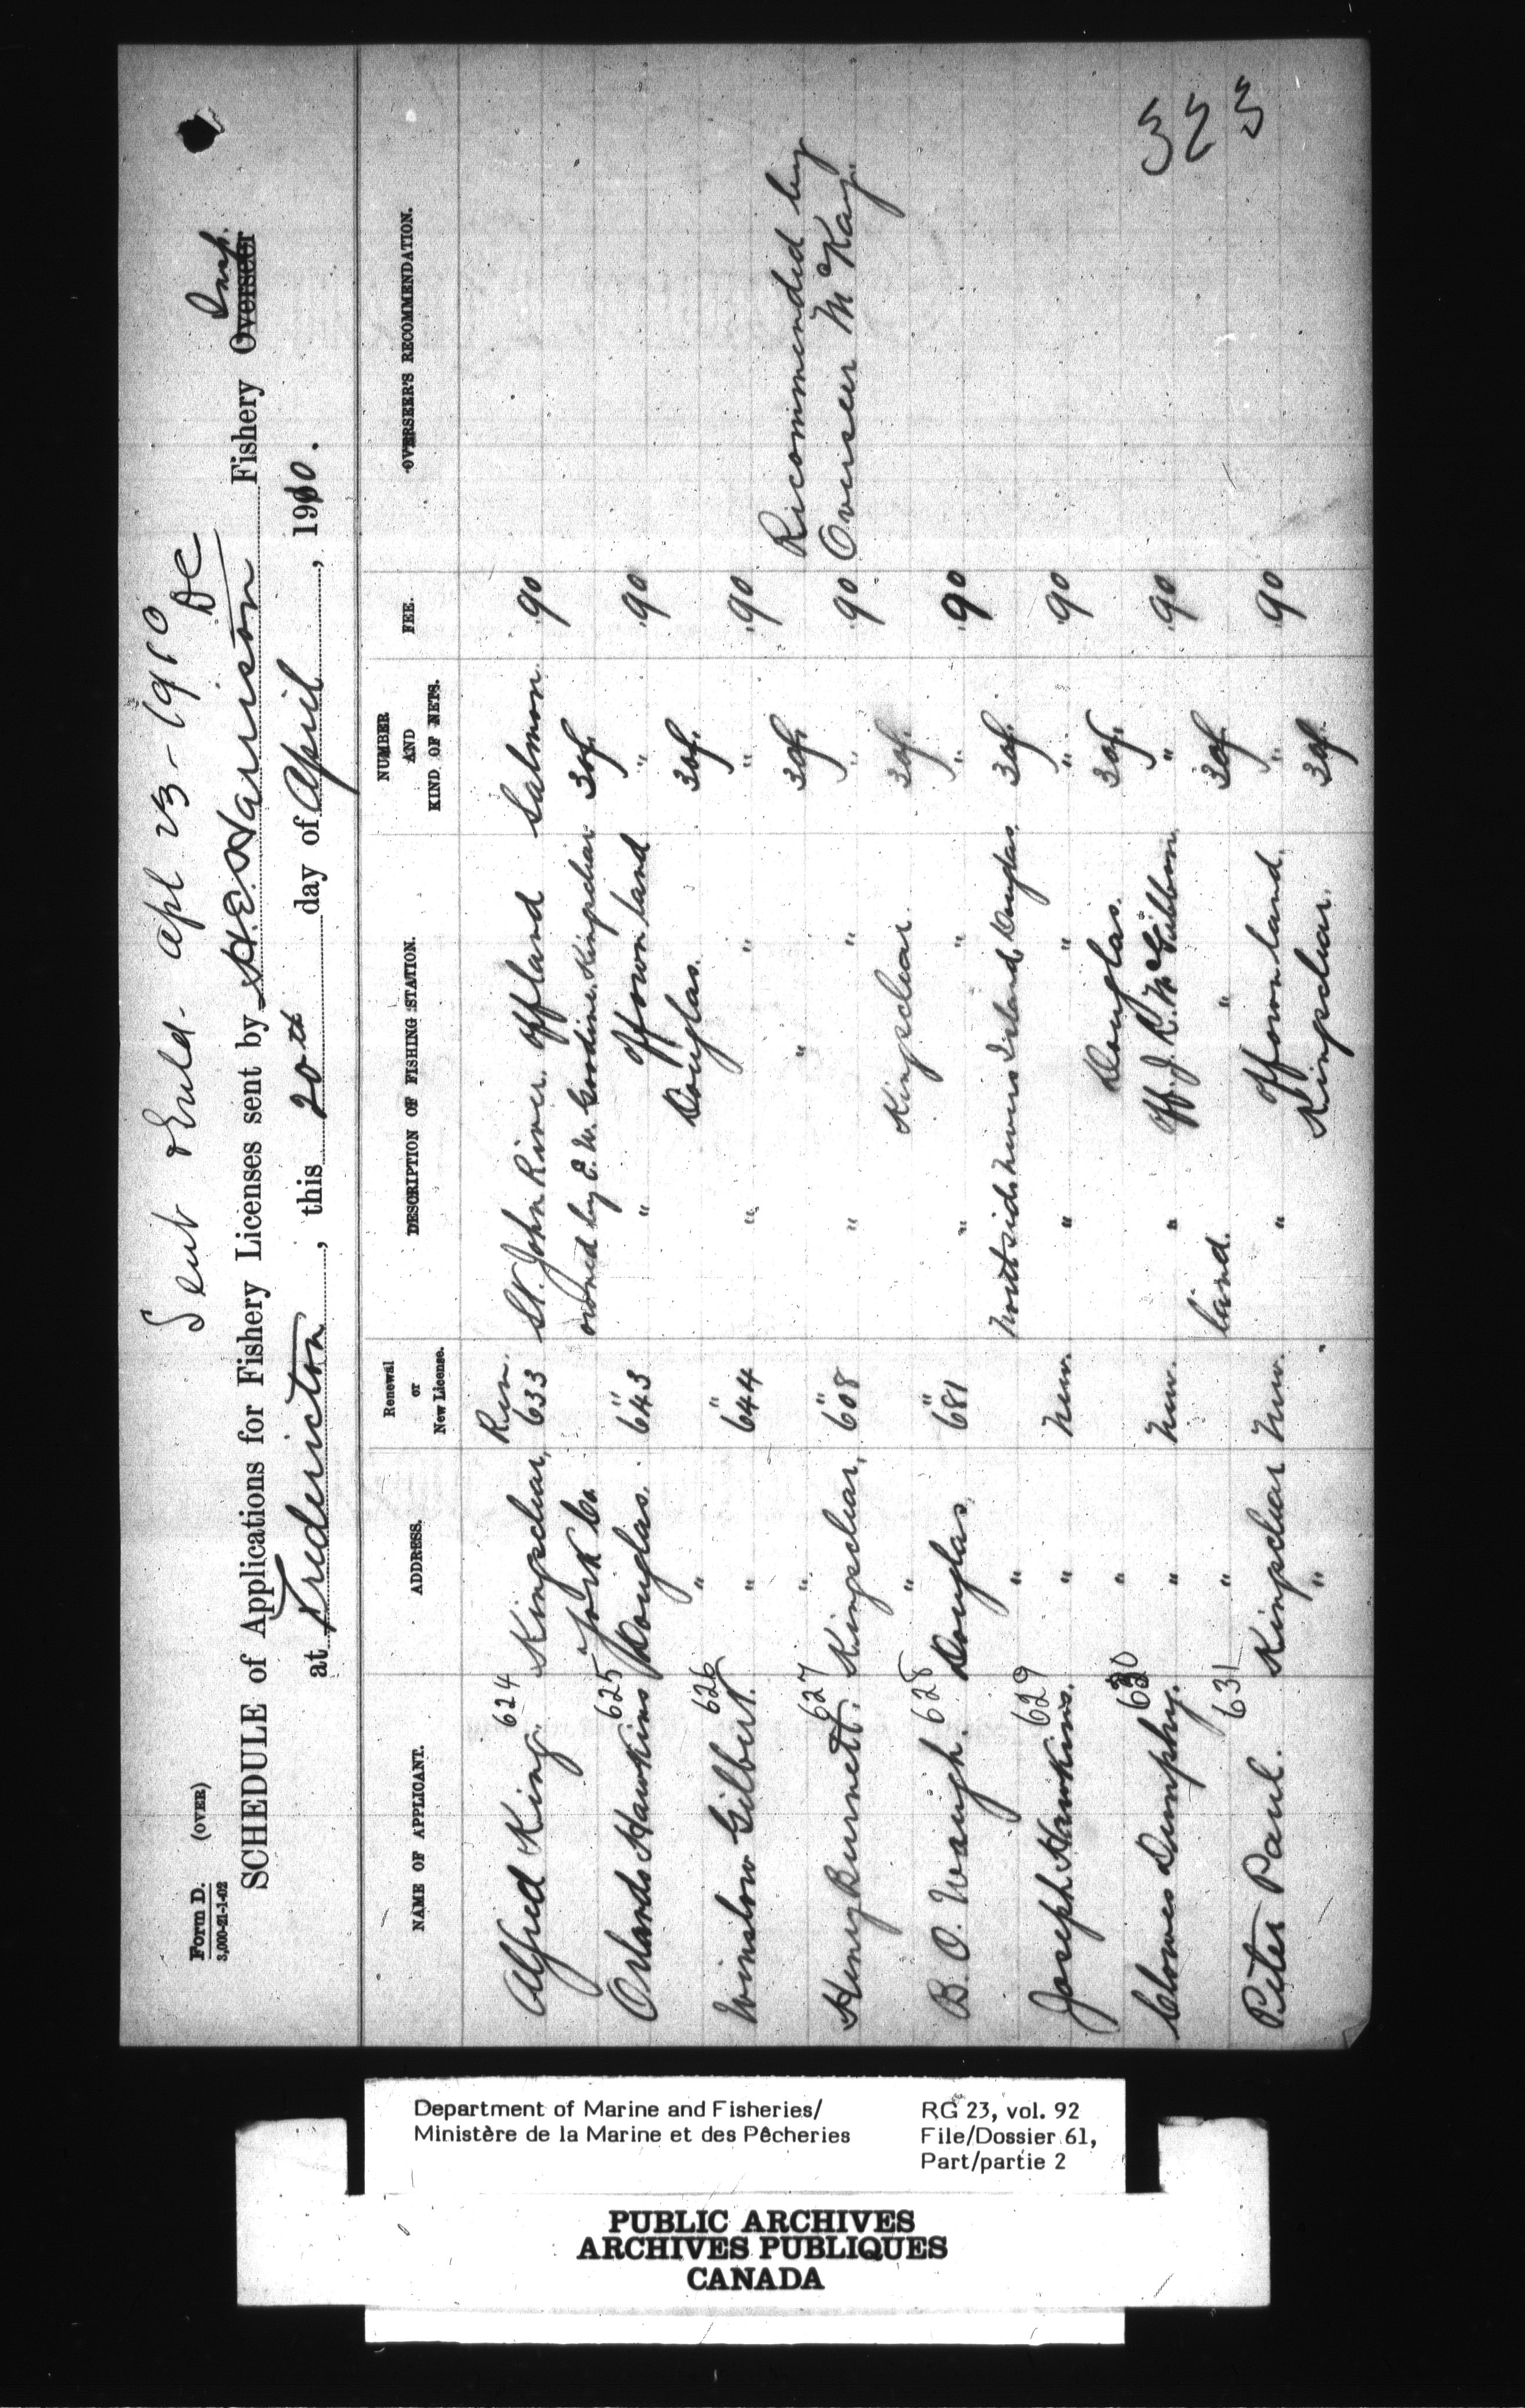 Form D. (OVER)
3,000-21-1-02
Sent Apl 23-1910
DC
SCHEDULE of Applications for Fishery Licenses sent by H.E. Harrison Fishery Overseer Insp.
at Fredericton, this 20th day of April, 1910.
NAME OF APPLICANT. ADDRESS. Renewal or New License. DESCRIPTION OF FISHING STATION. NUMBER AND KIND OF NETS. FEE. OVERSEER'S RECOMMENDATION.
624 Ren.
Alfred King Kingsclear, 633 St. John River. Off land Salmon .90
York Co. owned by E. W. Goodine, Kingsclear 30f.
625 "
Orlando Hawkins Douglas. 643 " Off own land " .90
" Douglas. 30f.
626 "
Winslow Gilbert. " 644 " " " .90
" " 30f.
627 "
Henry Burnett. Kingsclear, 608 " " " .90
" Kingsclear. 30f.
628 "
B. O. Waugh. Douglas. 681 " " " .90
" North side Island, Douglas. 30f.
629
Joseph Hawkins. " New. " " " .90
" Douglas. 30f.
630
Clowes Dunphy. " New. " Off. J. R. McGibbon " .90
" land. " 30f.
631
Peter Paul. Kingsclear New. " Off own land. " .90
" Kingsclear. 30f.
Recommended by
Overseer McKay.
323
Department of Marine and Fisheries/
Ministère de la Marine et des Pêcheries
RG 23, vol. 92
File/Dossier 61,
Part/partie 2
PUBLIC ARCHIVES
ARCHIVES PUBLIQUES
CANADA